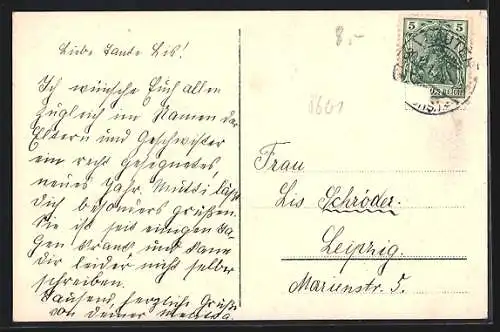 Liebe Tante Lis!
Ich wünsche Euch allen
zugleich im Namen der
Eltern und Geschwister
ein recht gesegnetes,
neues Jahr. Mutti läßt
Dich besonders grüßen.
Sie ist seit einigen Ta-
gen krank und kann
dir leider nicht selber
schreiben.
Tausend herzlich Grüße
von deiner
8.-
8601
5 5
Frau
Lis Schröder.
Leipzig.
Marienstr. 5.